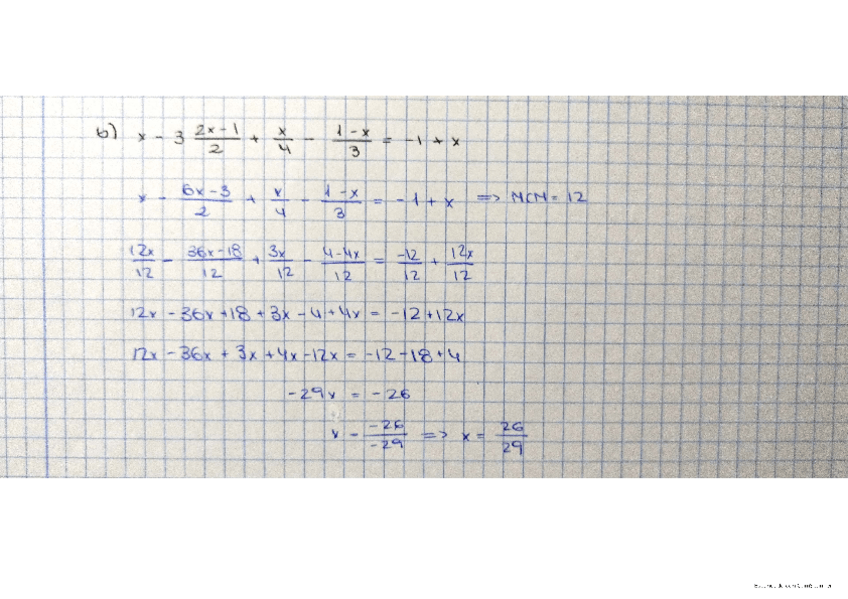 b) x - 3 (2x-1)/2 + x/4 - (1-x)/3 = -1 + x
x - (6x-3)/2 + x/4 - (1-x)/3 = -1 + x => MCM = 12
12x/12 - (36x-18)/12 + 3x/12 - (4-4x)/12 = -12/12 + 12x/12
12x - 36x + 18 + 3x - 4 + 4x = -12 + 12x
12x - 36x + 3x + 4x - 12x = -12 - 18 + 4
-29x = -26
x = -26/-29 => x = 26/29